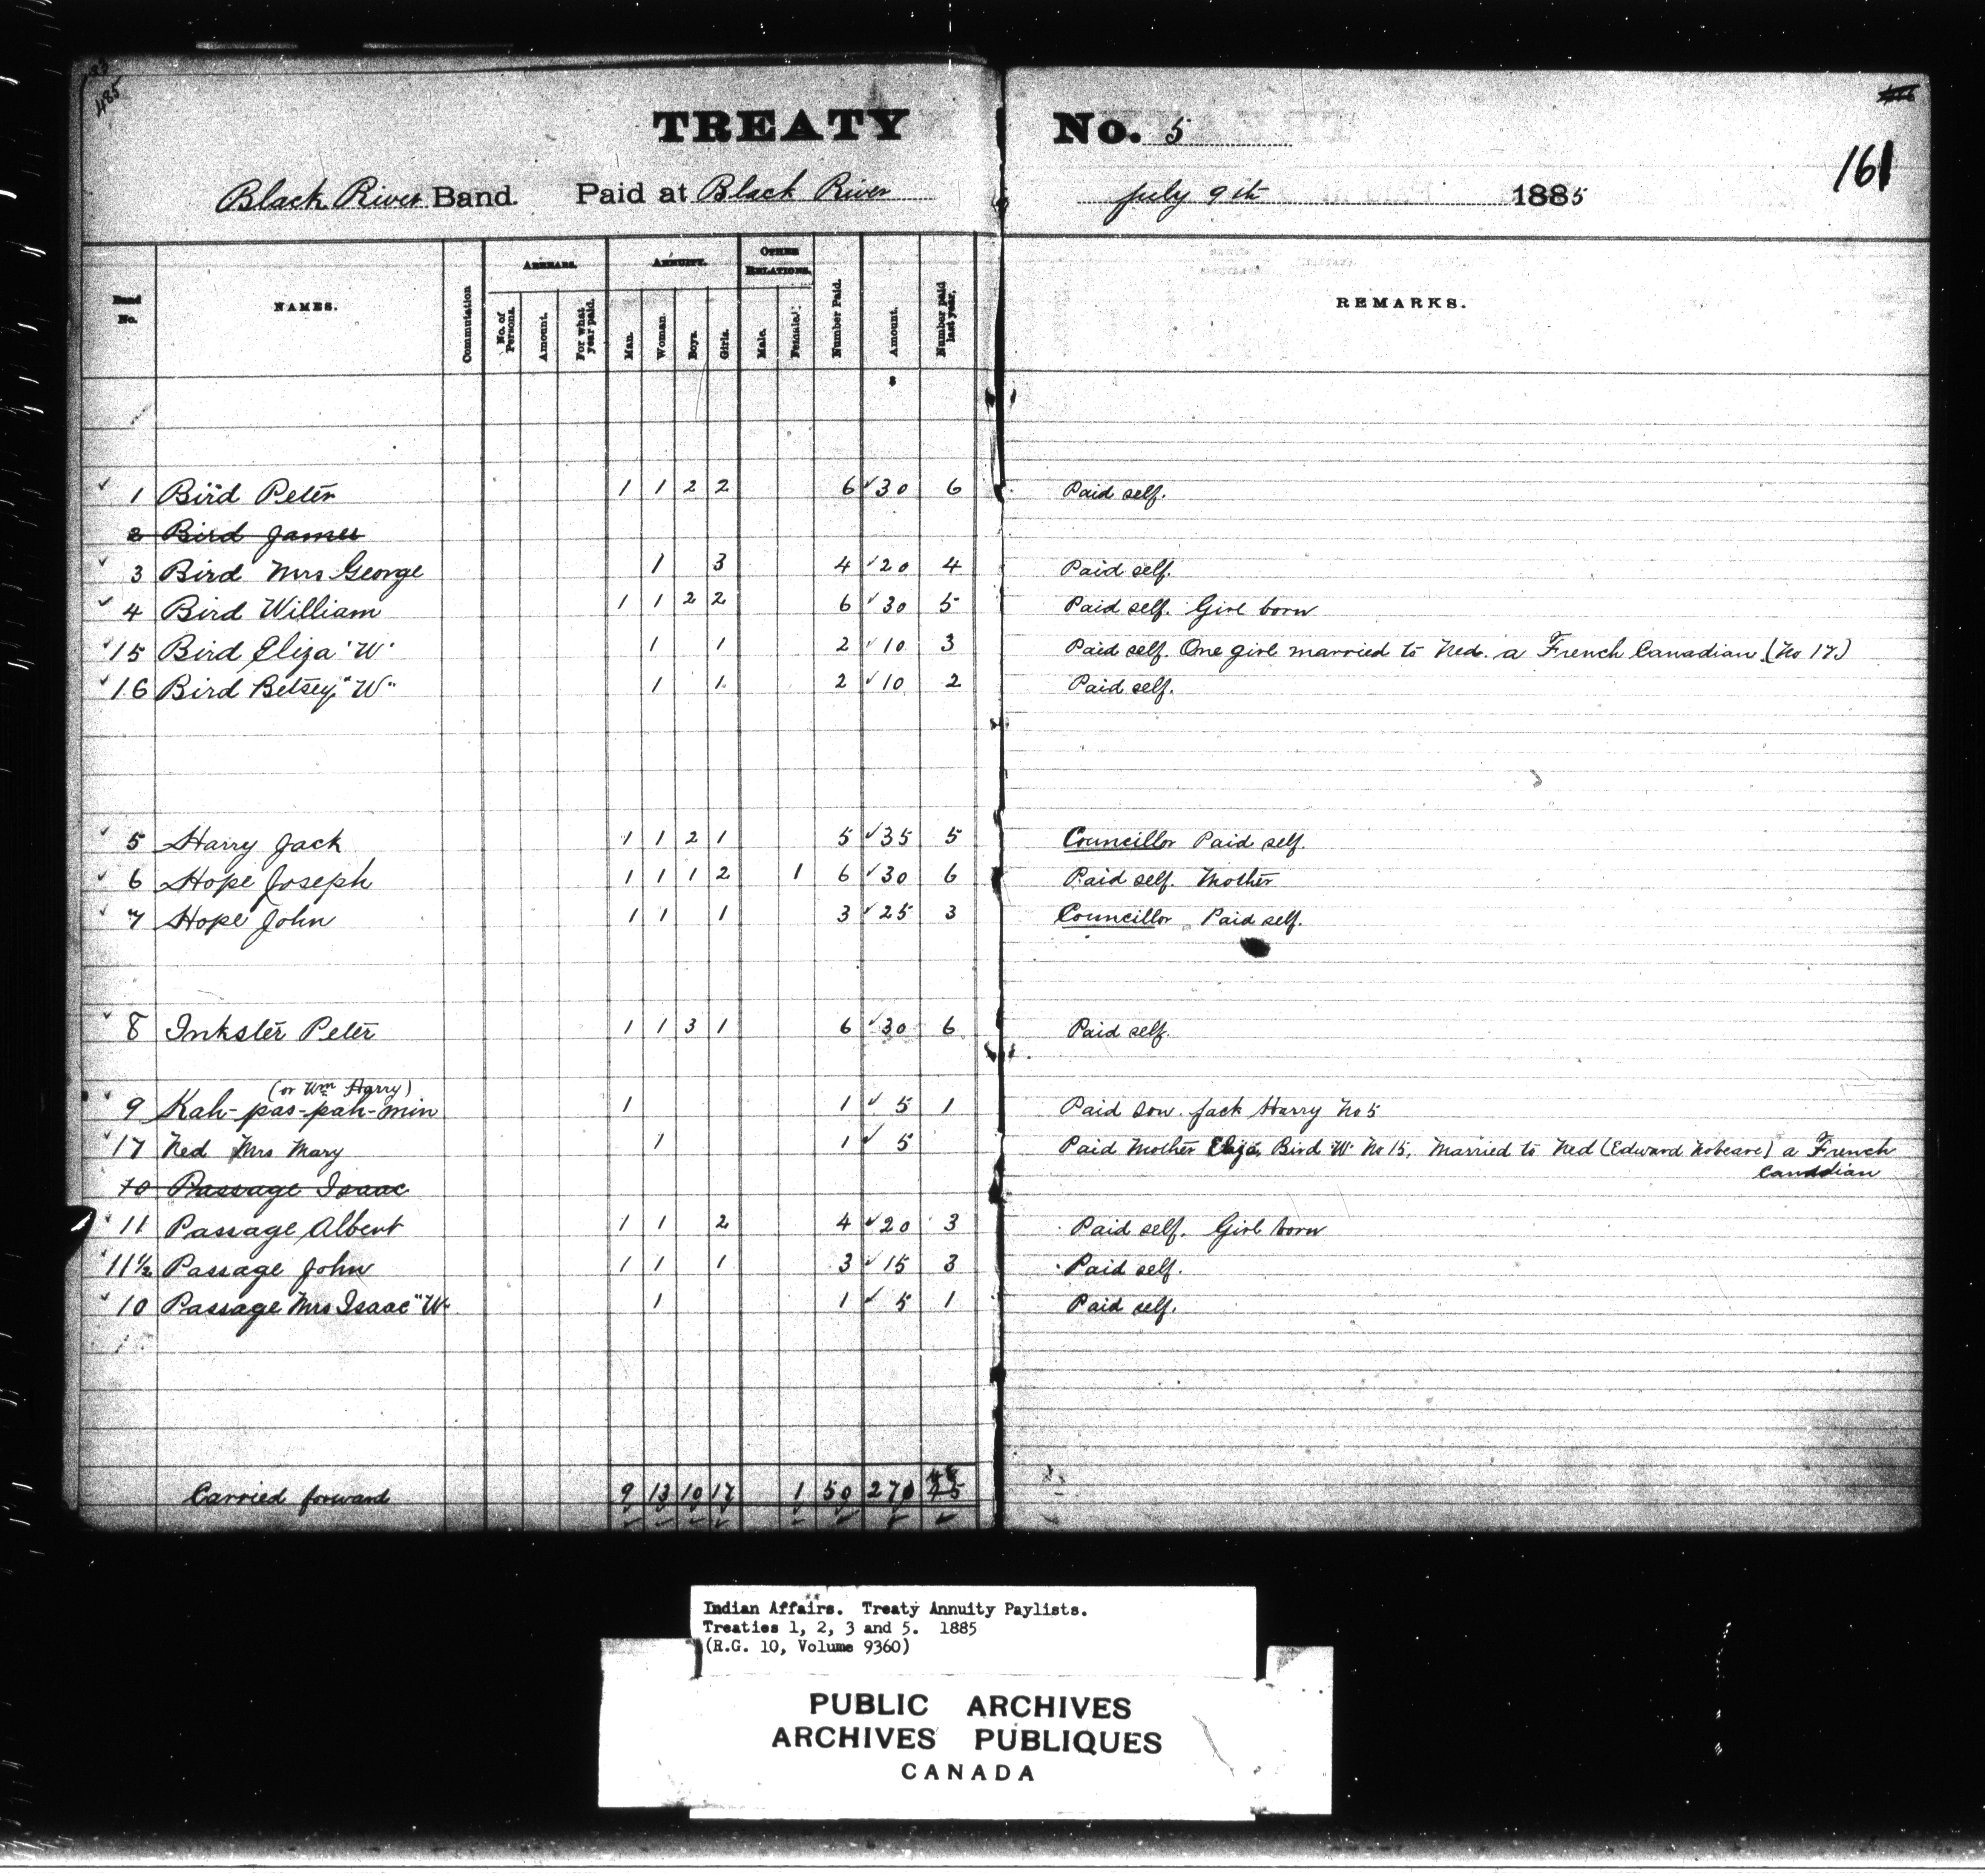 485
TREATY No. 5
161
Black River Band. Paid at Black River July 9th 1885
Band No. NAMES. Commutation ARREARS. No. of Persons. Amount. For what year paid. ANNUITY. Man. Woman. Boys. Girls. OTHER RELATIONS. Male. Female. Number Paid. Amount. Number paid last year. REMARKS.
$
✓ 1 Bird Peter 1 1 2 2 6 ✓30 6 Paid self.
2 Bird James
✓ 3 Bird Mrs George 1 3 4 ✓20 4 Paid self.
✓ 4 Bird William 1 1 2 2 6 ✓30 5 Paid self. Girl born
✓ 15 Bird Eliza "W" 1 1 2 ✓10 3 Paid self. One girl married to Ned. a French Canadian (No 17)
✓ 16 Bird Betsey "W" 1 1 2 ✓10 2 Paid self.
✓ 5 Harry Jack 1 1 2 1 5 ✓35 5 Councillor Paid self.
✓ 6 Hope Joseph 1 1 1 2 1 6 ✓30 6 Paid self. Mother
✓ 7 Hope John 1 1 1 3 ✓25 3 Councillor Paid self.
✓ 8 Inkster Peter 1 1 3 1 6 ✓30 6 Paid self.
(or Wm Harry)
✓ 9 Kah-pas-pah-min 1 1 ✓5 1 Paid son. Jack Harry No 5
✓ 17 Ned Mrs Mary 1 1 ✓5 Paid Mother Eliza Bird "W" No 15. Married to Ned (Edward Nobeare) a French
Canadian
10 Passage Isaac
✓ 11 Passage Albert 1 1 2 4 ✓20 3 Paid self. Girl born
✓ 11½ Passage John 1 1 1 3 ✓15 3 Paid self.
✓ 10 Passage Mrs Isaac "W" 1 1 ✓5 1 Paid self.
Carried forward 9 13 10 17 1 50 270
Indian Affairs. Treaty Annuity Paylists.
Treaties 1, 2, 3 and 5. 1885
(R.G. 10, Volume 9360)
PUBLIC ARCHIVES
ARCHIVES PUBLIQUES
CANADA